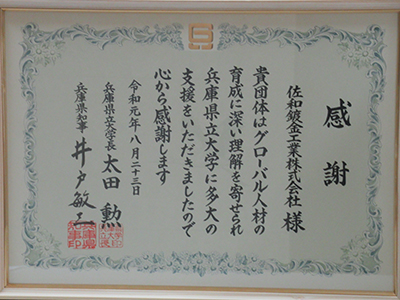 感謝
佐和鍍金工業株式会社 様
貴団体はグローバル人材の
育成に深い理解を寄せられ
兵庫県立大学に多大の
支援をいただきましたので
心から感謝します
令和元年八月二十三日
兵庫県立大学長 太田 勲
兵庫県知事 井戸敏三